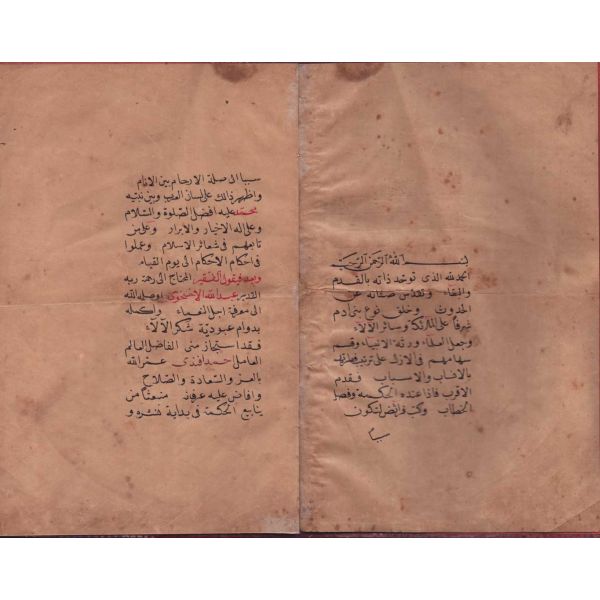 بسم الله الرحمن الرحيم
الحمد لله الذى توحد ذاته بالقدم
والبقاء وتقدس صفاته عن
الحدوث وخلق نوع بنى آدم
شرفا على الملائكة وسائر الآلاء
وجعل العلماء ورثة الانبياء وقسم
سهامهم فى الازل على ترتيب
بالانساب والاسباب فقدم
الاقرب فاذا عنده الحكمة وفصل
الخطاب وكتب فرائض لتكون
سببا
سببا الى صلة الارحام بين الانام
واظهر ذلك على لسان العرب وبين نبيه
محمد عليه افضل الصلوة والسلام
وعلى اله الاخيار والابرار وعلى من
تابعهم فى شعائر الاسلام وعملوا
فى احكام الاحكام الى يوم القيام
وبعد فيقول الفقير المحتاج الى رحمة ربه
القدير عبد الله اوصله الله
الى معرفة اجل النعماء واكمله
بدوام عبودية شكر الآلاء
فقد استجاز منى الفاضل العالم
العامل احمد افندى عمره الله
بالعز والسعادة والصلاح
وافاض عليه عرفانه منبعثا من
ينابيع الحكمة فى بداية نشره و